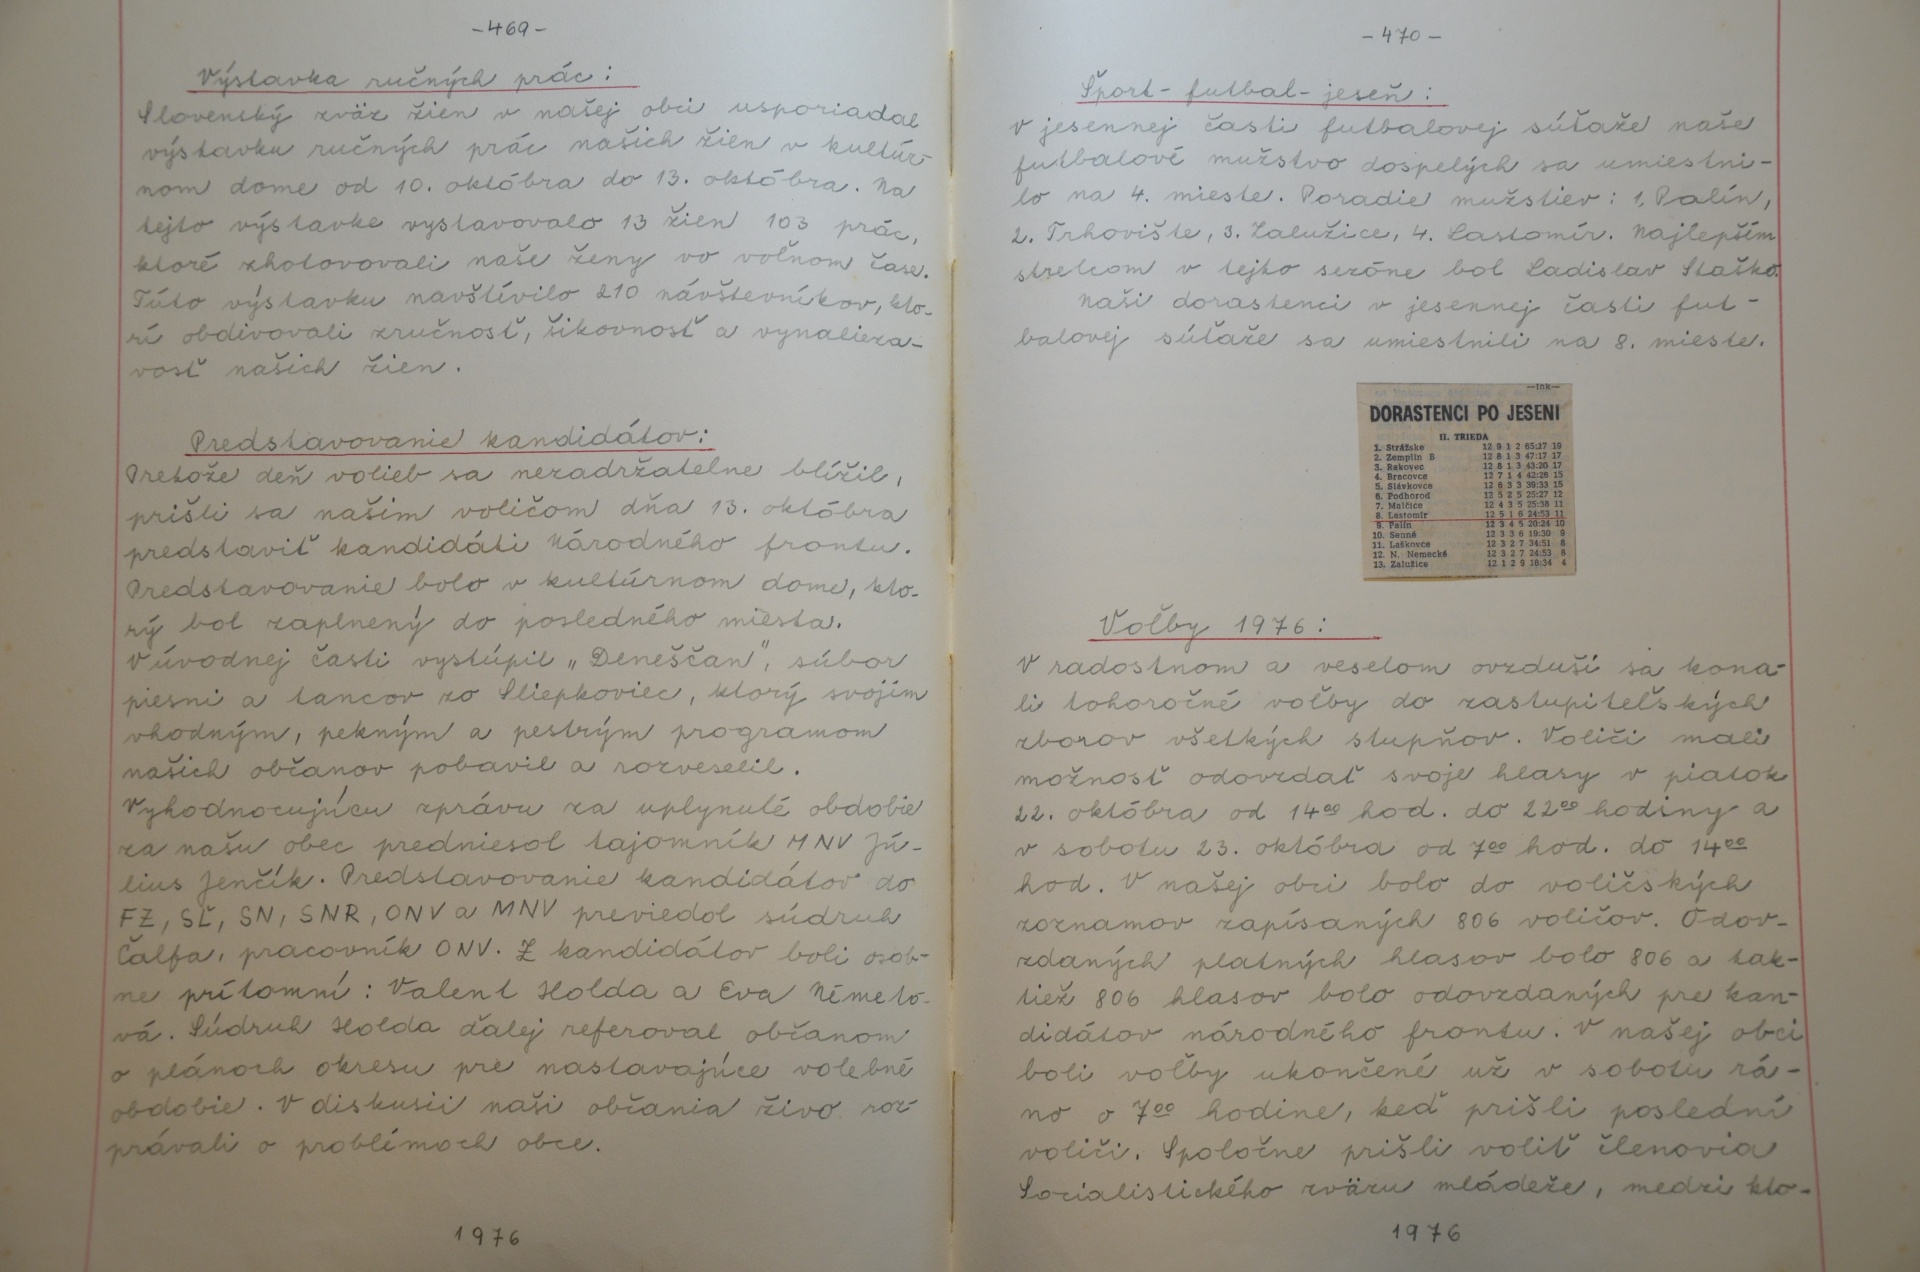 -469-
Výstavka ručných prác:
Slovenský zväz žien v našej obci usporiadal
výstavku ručných prác našich žien v kultúr-
nom dome od 10. októbra do 13. októbra. Na
tejto výstavke vystavovalo 13 žien 103 prác,
ktoré zhotovovali naše ženy vo voľnom čase.
Túto výstavku navštívilo 210 návštevníkov, kto-
rí obdivovali zručnosť, šikovnosť a vynalieza-
vosť našich žien.
Predstavovanie kandidátov:
Pretože deň volieb sa nezadržatelne blížil,
prišli sa našim voličom dňa 13. októbra
predstaviť kandidáti Národného frontu.
Predstavovanie bolo v kultúrnom dome, kto-
rý bol zaplnený do posledného miesta.
V úvodnej časti vystúpil „Deneščan", súbor
piesni a tancov zo Sliepkoviec, ktorý svojím
vhodným, pekným a pestrým programom
našich občanov pobavil a rozveselil.
Vyhodnocujúcu zprávu za uplynulé obdobie
za našu obec predniesol tajomník MNV Jú-
lius Jenčík. Predstavovanie kandidátov do
FZ, SĽ, SN, SNR, ONV a MNV previedol súdruh
Čalfa, pracovník ONV. Z kandidátov boli osob-
ne prítomní: Valent Holda a Eva Németo-
vá. Súdruh Holda ďalej referoval občanom
o plánoch okresu pre nastavajúce volebné
obdobie. V diskusii naši občania živo roz-
právali o problémoch obce.
1976
-470-
Šport- futbal- jeseň:
V jesennej časti futbalovej súťaže naše
futbalové mužstvo dospelých sa umiestni-
lo na 4. mieste. Poradie mužstiev: 1. Palín,
2. Trhovište, 3. Zalužice, 4. Lastomír. Najlepším
strelcom v tejto sezóne bol Ladislav Staško.
Naši dorastenci v jesennej časti fut-
balovej súťaže sa umiestnili na 8. mieste.
—ink—
DORASTENCI PO JESENI
II. TRIEDA
1. Strážske 12 9 1 2 65:27 19
2. Zemplín B 12 8 1 3 47:17 17
3. Rakovec 12 8 1 3 43:20 17
4. Bracovce 12 7 1 4 42:26 15
5. Slávkovce 12 6 3 3 39:33 15
6. Podhoroď 12 5 2 5 25:27 12
7. Malčice 12 4 3 5 25:38 11
8. Lastomír 12 5 1 6 24:53 11
9. Palín 12 3 4 5 20:24 10
10. Senné 12 3 3 6 19:30 9
11. Laškovce 12 3 2 7 34:51 8
12. N. Nemecké 12 3 2 7 24:53 8
13. Zalužice 12 1 2 9 18:34 4
Voľby 1976:
V radostnom a veselom ovzduší sa kona-
li tohoročné voľby do zastupiteľských
zborov všetkých stupňov. Voliči mali
možnosť odovzdať svoje hlasy v piatok
22. októbra od 14⁰⁰ hod. do 22⁰⁰ hodiny a
v sobotu 23. októbra od 7⁰⁰ hod. do 14⁰⁰
hod. V našej obci bolo do voličských
zoznamov zapísaných 806 voličov. Odov-
zdaných platných hlasov bolo 806 a tak-
tiež 806 hlasov bolo odovzdaných pre kan-
didátov národného frontu. V našej obci
boli voľby ukončené už v sobotu rá-
no o 7⁰⁰ hodine, keď prišli poslední
voliči. Spoločne prišli voliť členovia
Socialistického zväzu mládeže, medzi kto-
1976